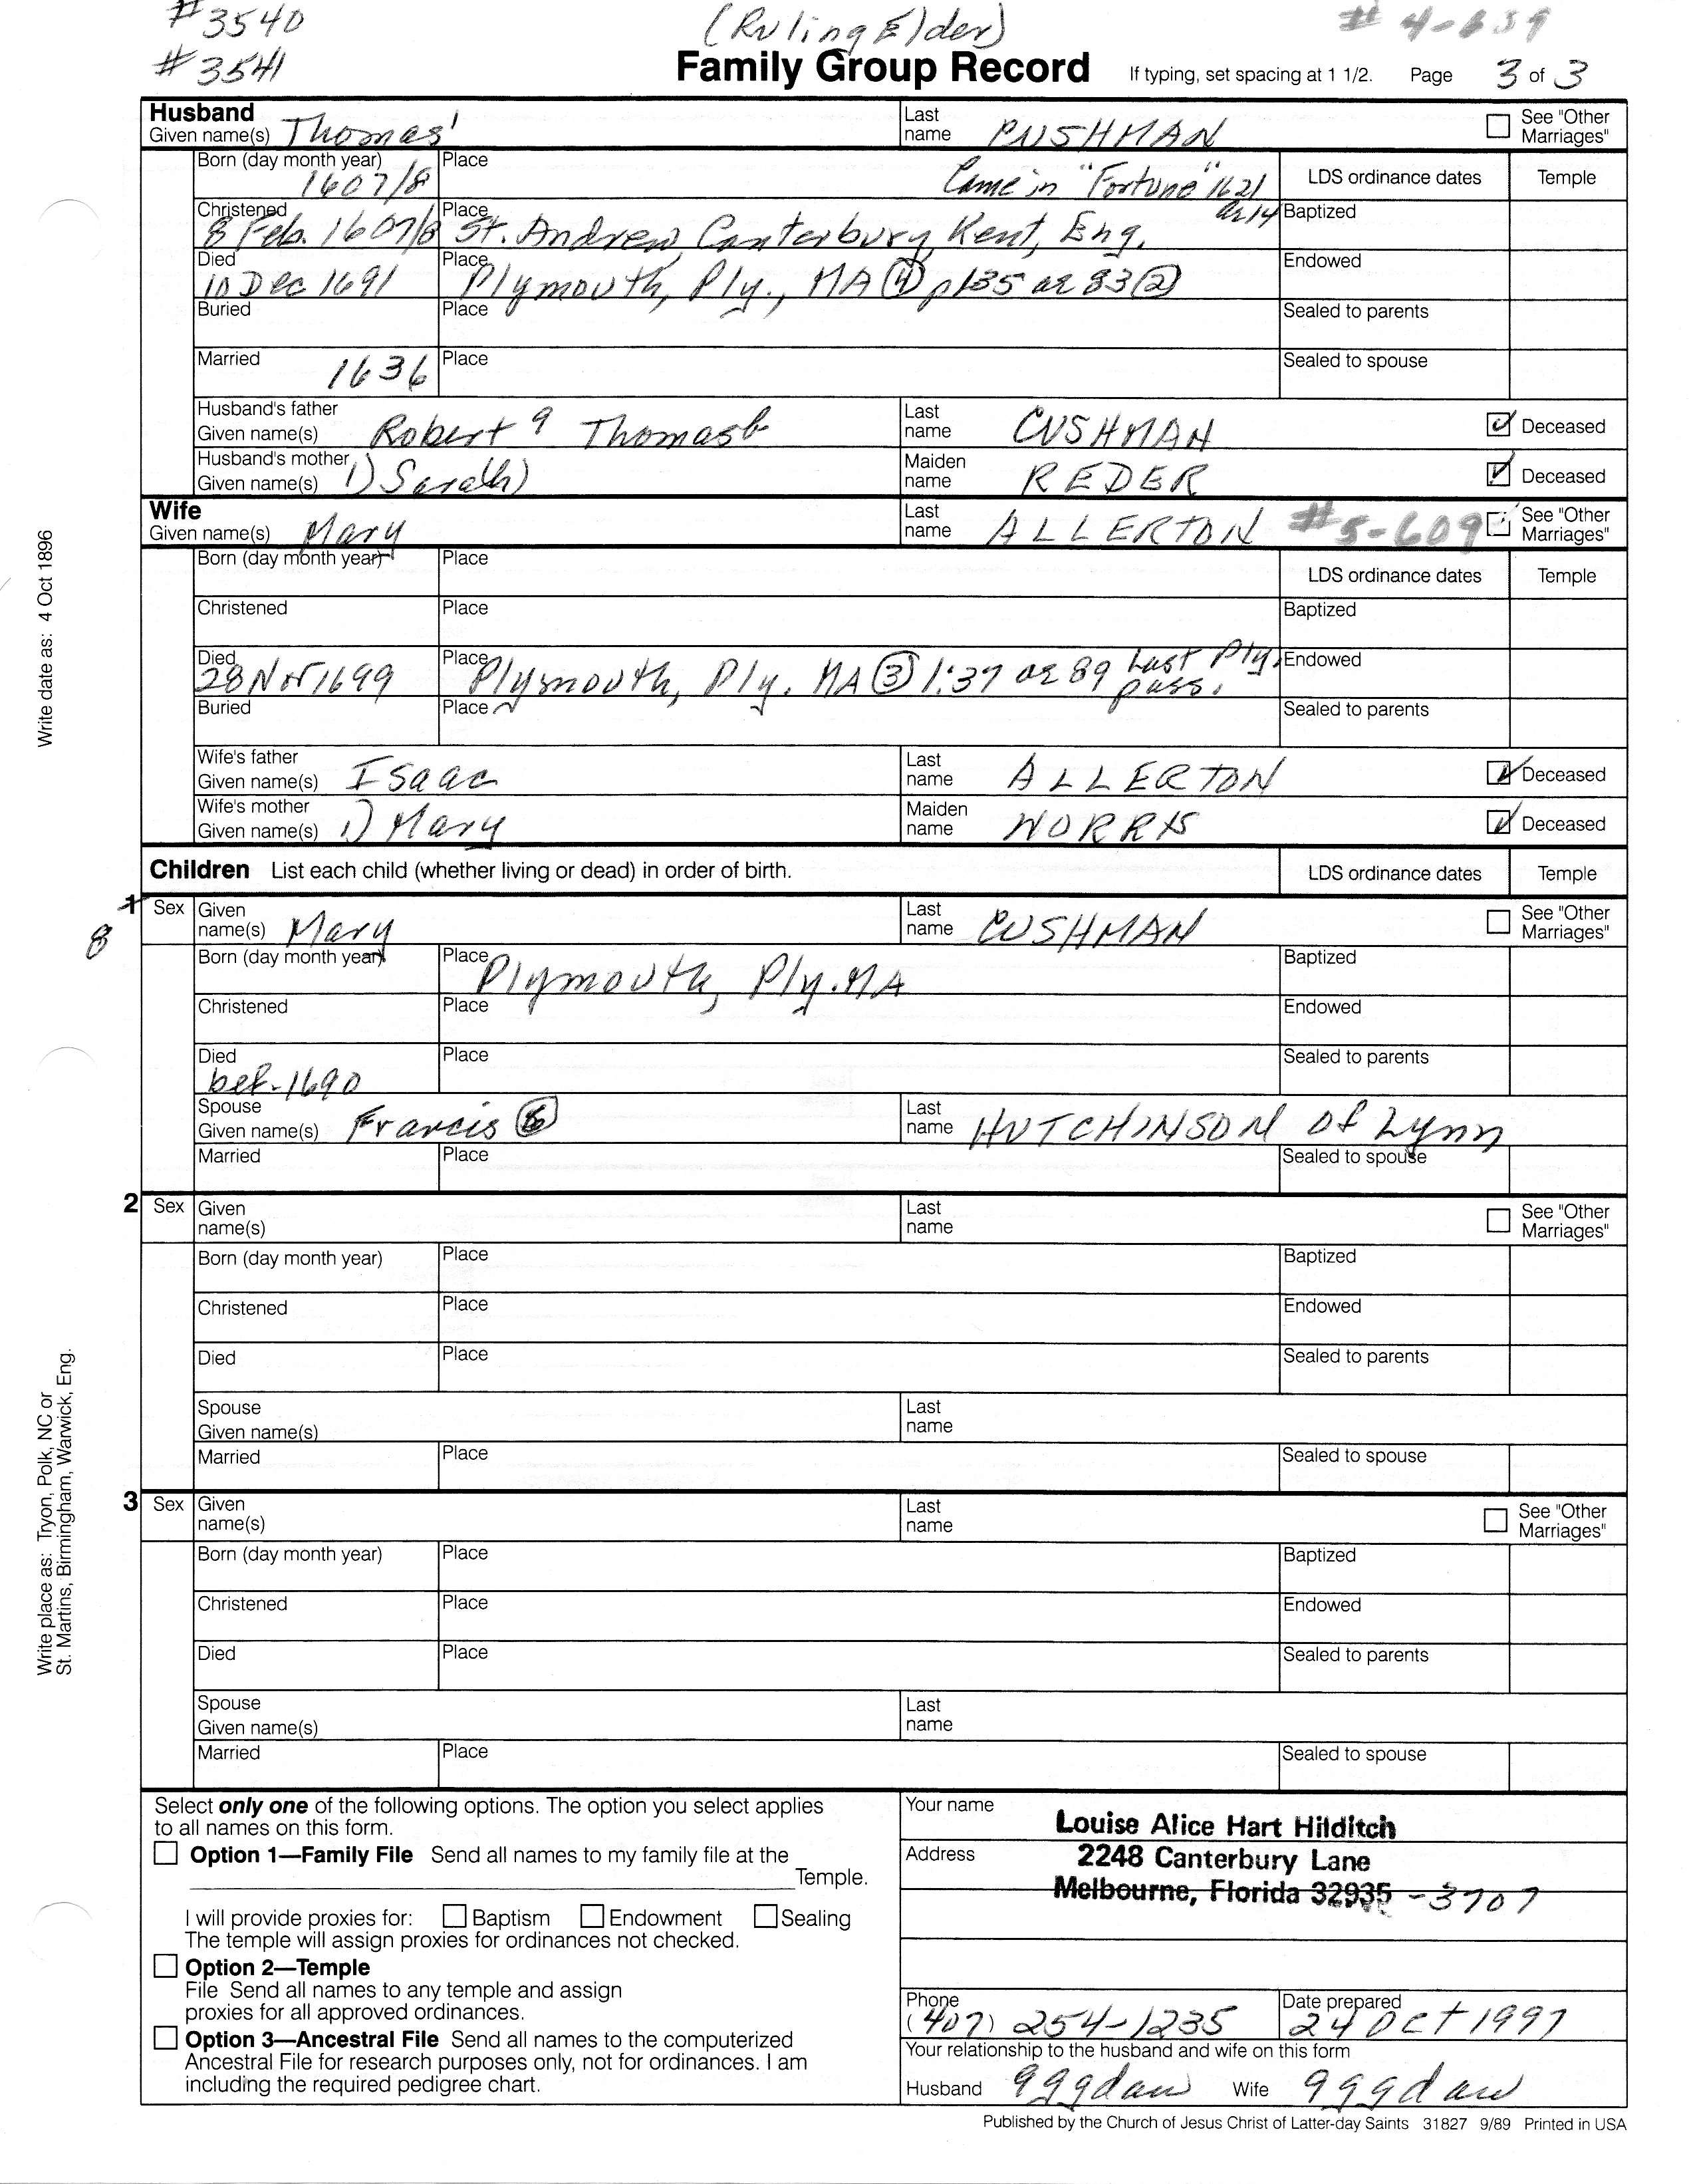 #3540 (Ruling Elder) # 4-639
#3541 Family Group Record If typing, set spacing at 1 1/2. Page 3 of 3
Husband
Given name(s) Thomas¹ Last name CUSHMAN See "Other Marriages"
Born (day month year) 1607/8 Place Came in "Fortune" 1621 ae 14 LDS ordinance dates Temple
Christened 8 Feb. 1607/8 Place St. Andrew, Canterbury, Kent, Eng. Baptized
Died 10 Dec 1691 Place Plymouth, Ply., MA ④ p135 ae 83 ② Endowed
Buried Place Sealed to parents
Married 1636 Place Sealed to spouse
Husband's father Given name(s) Robert a Thomas b Last name CUSHMAN Deceased
Husband's mother Given name(s) 1) Sara(h) Maiden name REDER Deceased
Wife
Given name(s) Mary Last name ALLERTON #5-609 See "Other Marriages"
Born (day month year) Place LDS ordinance dates Temple
Christened Place Baptized
Died 28 Nov 1699 Place Plymouth, Ply. MA ③ 1:37 ae 89 Last Ply. pass. Endowed
Buried Place Sealed to parents
Wife's father Given name(s) Isaac Last name ALLERTON Deceased
Wife's mother Given name(s) 1) Mary Maiden name NORRIS Deceased
Children List each child (whether living or dead) in order of birth. LDS ordinance dates Temple
1 8 Sex Given name(s) Mary Last name CUSHMAN See "Other Marriages"
Born (day month year) Place Plymouth, Ply. MA Baptized
Christened Place Endowed
Died bef. 1690 Place Sealed to parents
Spouse Given name(s) Francis Last name HUTCHINSON of Lynn
Married Place Sealed to spouse
2 Sex Given name(s) Last name See "Other Marriages"
Born (day month year) Place Baptized
Christened Place Endowed
Died Place Sealed to parents
Spouse Given name(s) Last name
Married Place Sealed to spouse
3 Sex Given name(s) Last name See "Other Marriages"
Born (day month year) Place Baptized
Christened Place Endowed
Died Place Sealed to parents
Spouse Given name(s) Last name
Married Place Sealed to spouse
Write date as: 4 Oct 1896
Write place as: Tryon, Polk, NC or
St. Martins, Birmingham, Warwick, Eng.
Select only one of the following options. The option you select applies
to all names on this form.
Option 1—Family File Send all names to my family file at the
Temple.
I will provide proxies for: Baptism Endowment Sealing
The temple will assign proxies for ordinances not checked.
Option 2—Temple
File Send all names to any temple and assign
proxies for all approved ordinances.
Option 3—Ancestral File Send all names to the computerized
Ancestral File for research purposes only, not for ordinances. I am
including the required pedigree chart.
Your name Louise Alice Hart Hilditch
Address 2248 Canterbury Lane
Melbourne, Florida 32935 -3707
Phone (407) 254-1235 Date prepared 24 Oct 1997
Your relationship to the husband and wife on this form
Husband 9ggdau Wife 9ggdau
Published by the Church of Jesus Christ of Latter-day Saints 31827 9/89 Printed in USA